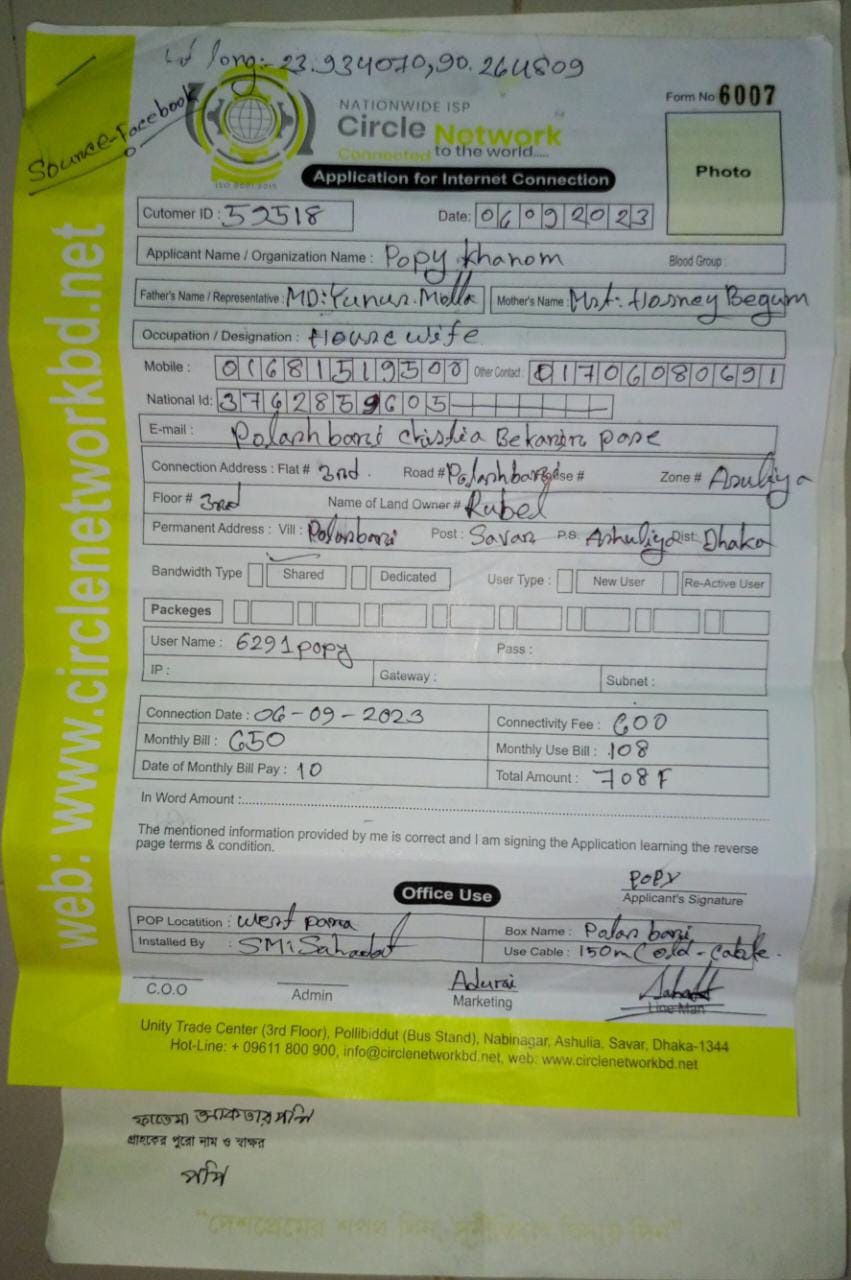 Lat long:- 23.934070,90.264809
Source-Facebook
NATIONWIDE ISP
Circle Network
Connected to the world.....
ISO 9001:2015
Form No 6007
Photo
Application for Internet Connection
Cutomer ID : 52518 Date: 06092023
Applicant Name / Organization Name : Popy Khanom Blood Group :
Father's Name / Representative : MD: Yunus. Molla Mother's Name : Mst: Hosney Begum
Occupation / Designation : House wife
Mobile : 01681519500 Other Contact : 01706080691
National Id: 3762859605
E-mail : Polashbari Bekarir pase
Connection Address : Flat # 3rd. Road # Polashbari se # Zone # Asuliya
Floor # 3rd Name of Land Owner # Rubel
Permanent Address : Vill : Polasbari Post : Savar P.S. Ashuliya Dist: Dhaka
Bandwidth Type Shared Dedicated User Type : New User Re-Active User
Packeges
User Name : 6291popy Pass :
IP : Gateway : Subnet :
Connection Date : 06-09-2023 Connectivity Fee : 600
Monthly Bill : 650 Monthly Use Bill : 108
Date of Monthly Bill Pay : 10 Total Amount : 708
In Word Amount :
The mentioned information provided by me is correct and I am signing the Application learning the reverse
page terms & condition.
POPY
Applicant's Signature
Office Use
POP Locatition : West para Box Name : Palas bari
Installed By : SMi Sahadat Use Cable : 150m old-Cable.
C.O.O Admin Marketing Line Man
Unity Trade Center (3rd Floor), Pollibiddut (Bus Stand), Nabinagar, Ashulia, Savar, Dhaka-1344
Hot-Line: + 09611 800 900, info@circlenetworkbd.net, web: www.circlenetworkbd.net
web: www.circlenetworkbd.net
ফাতেমা আকতার পপি
গ্রাহকের পুরো নাম ও স্বাক্ষর
পপি
"দেশপ্রেমের শপথ নিন, দুর্নীতিকে বিদায় দিন"